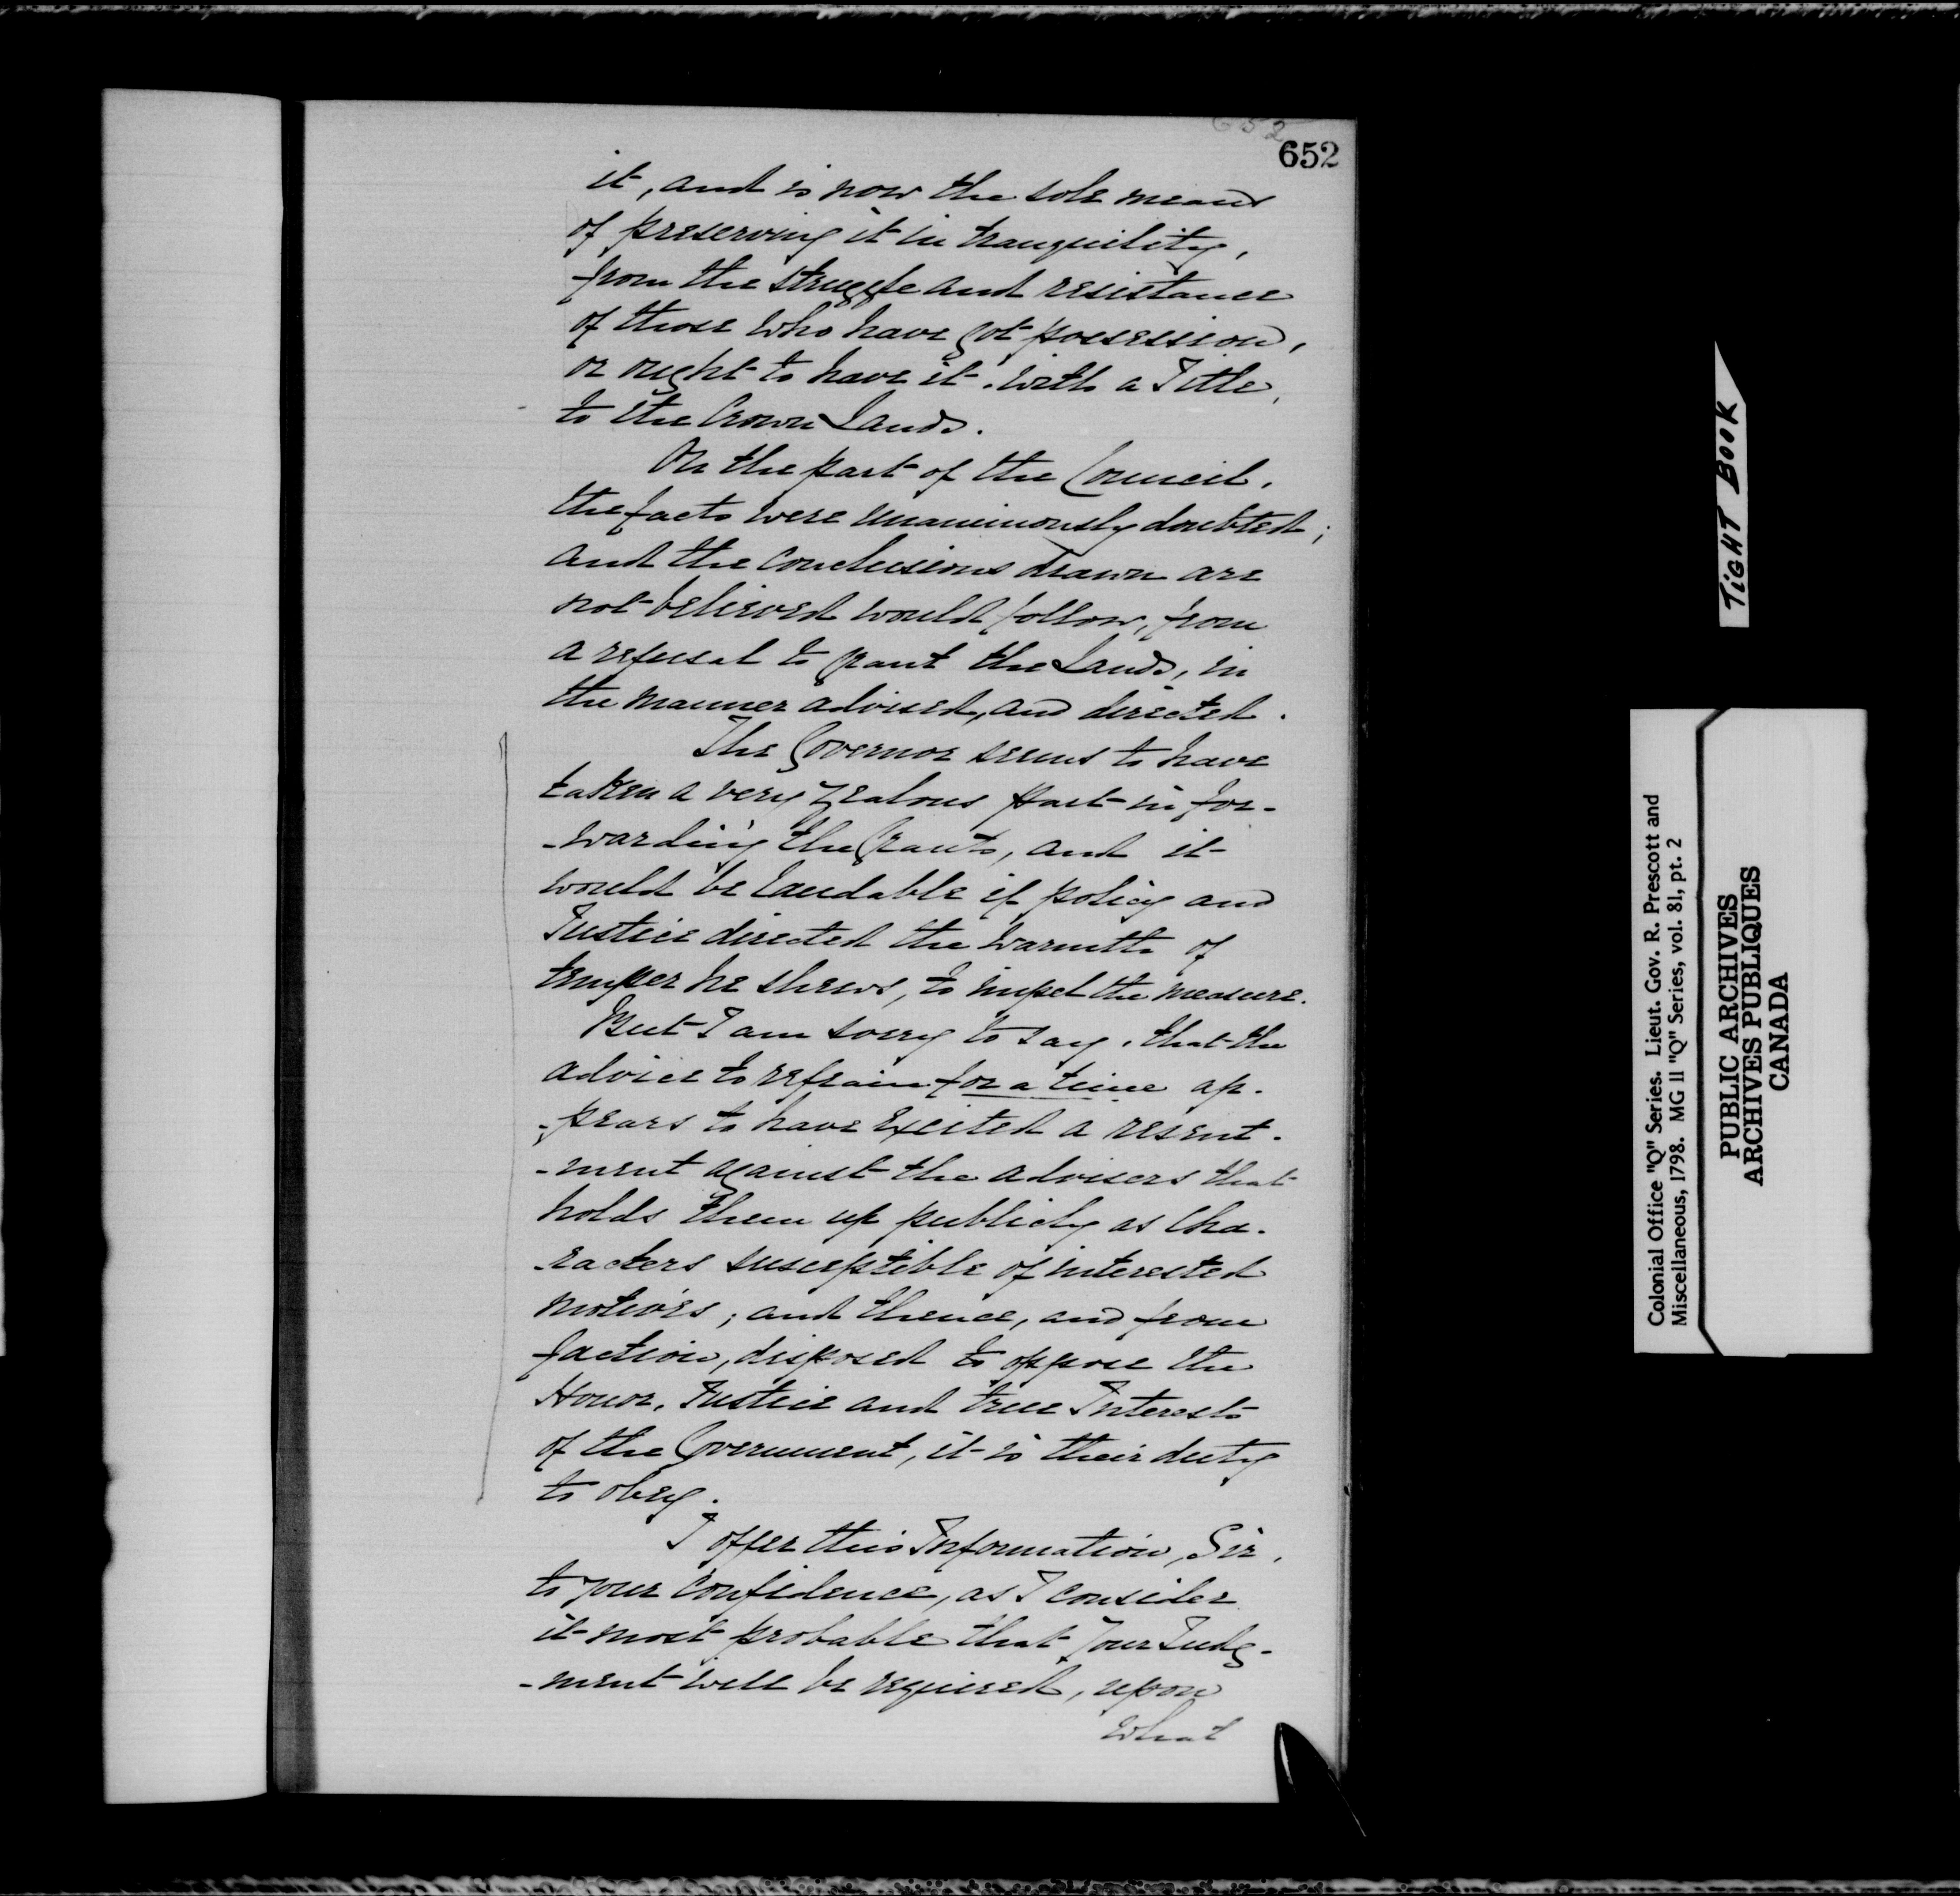 652
652
it, and is now the sole means
of preserving it in tranquility,
from the struggle and resistance
of those who have got possession,
or ought to have it, with a Title,
to the Crown Lands.
On the part of the Council,
the facts were unanimously doubted;
and the conclusions drawn are
not believed would follow, from
a refusal to grant the Lands, in
the manner advised, and directed.
The Governor seems to have
taken a very zealous part in for-
-warding the Grants, and it
would be laudable if policy and
Justice directed the warmth of
temper he shews, to impel the measure.
But I am sorry to say, that the
advice to refrain for a time ap-
-pears to have excited a resent-
-ment against the advisers that
holds them up publicly as Cha-
-racters susceptible of interested
motives; and thence, and from
faction, disposed to oppose the
Honor, Justice and true Interests
of the Government, it is their duty
to obey.
I offer this Information, Sir,
to your Confidence, as I consider
it most probable that Your Judg-
-ment will be required, upon
what
TIGHT BOOK
Colonial Office "Q" Series. Lieut. Gov. R. Prescott and
Miscellaneous, 1798. MG 11 "Q" Series, vol. 81, pt. 2
PUBLIC ARCHIVES
ARCHIVES PUBLIQUES
CANADA